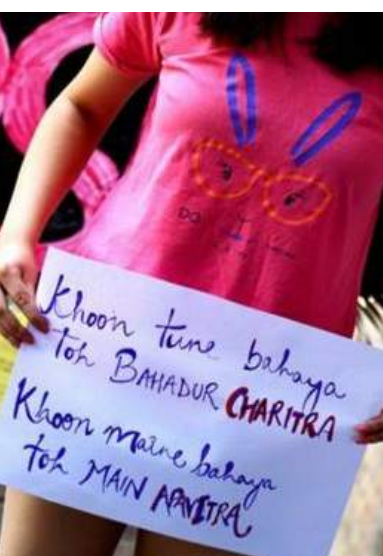 Khoon tune bahaya
toh BAHADUR CHARITRA
Khoon maine bahaya
toh MAIN APAVITRA